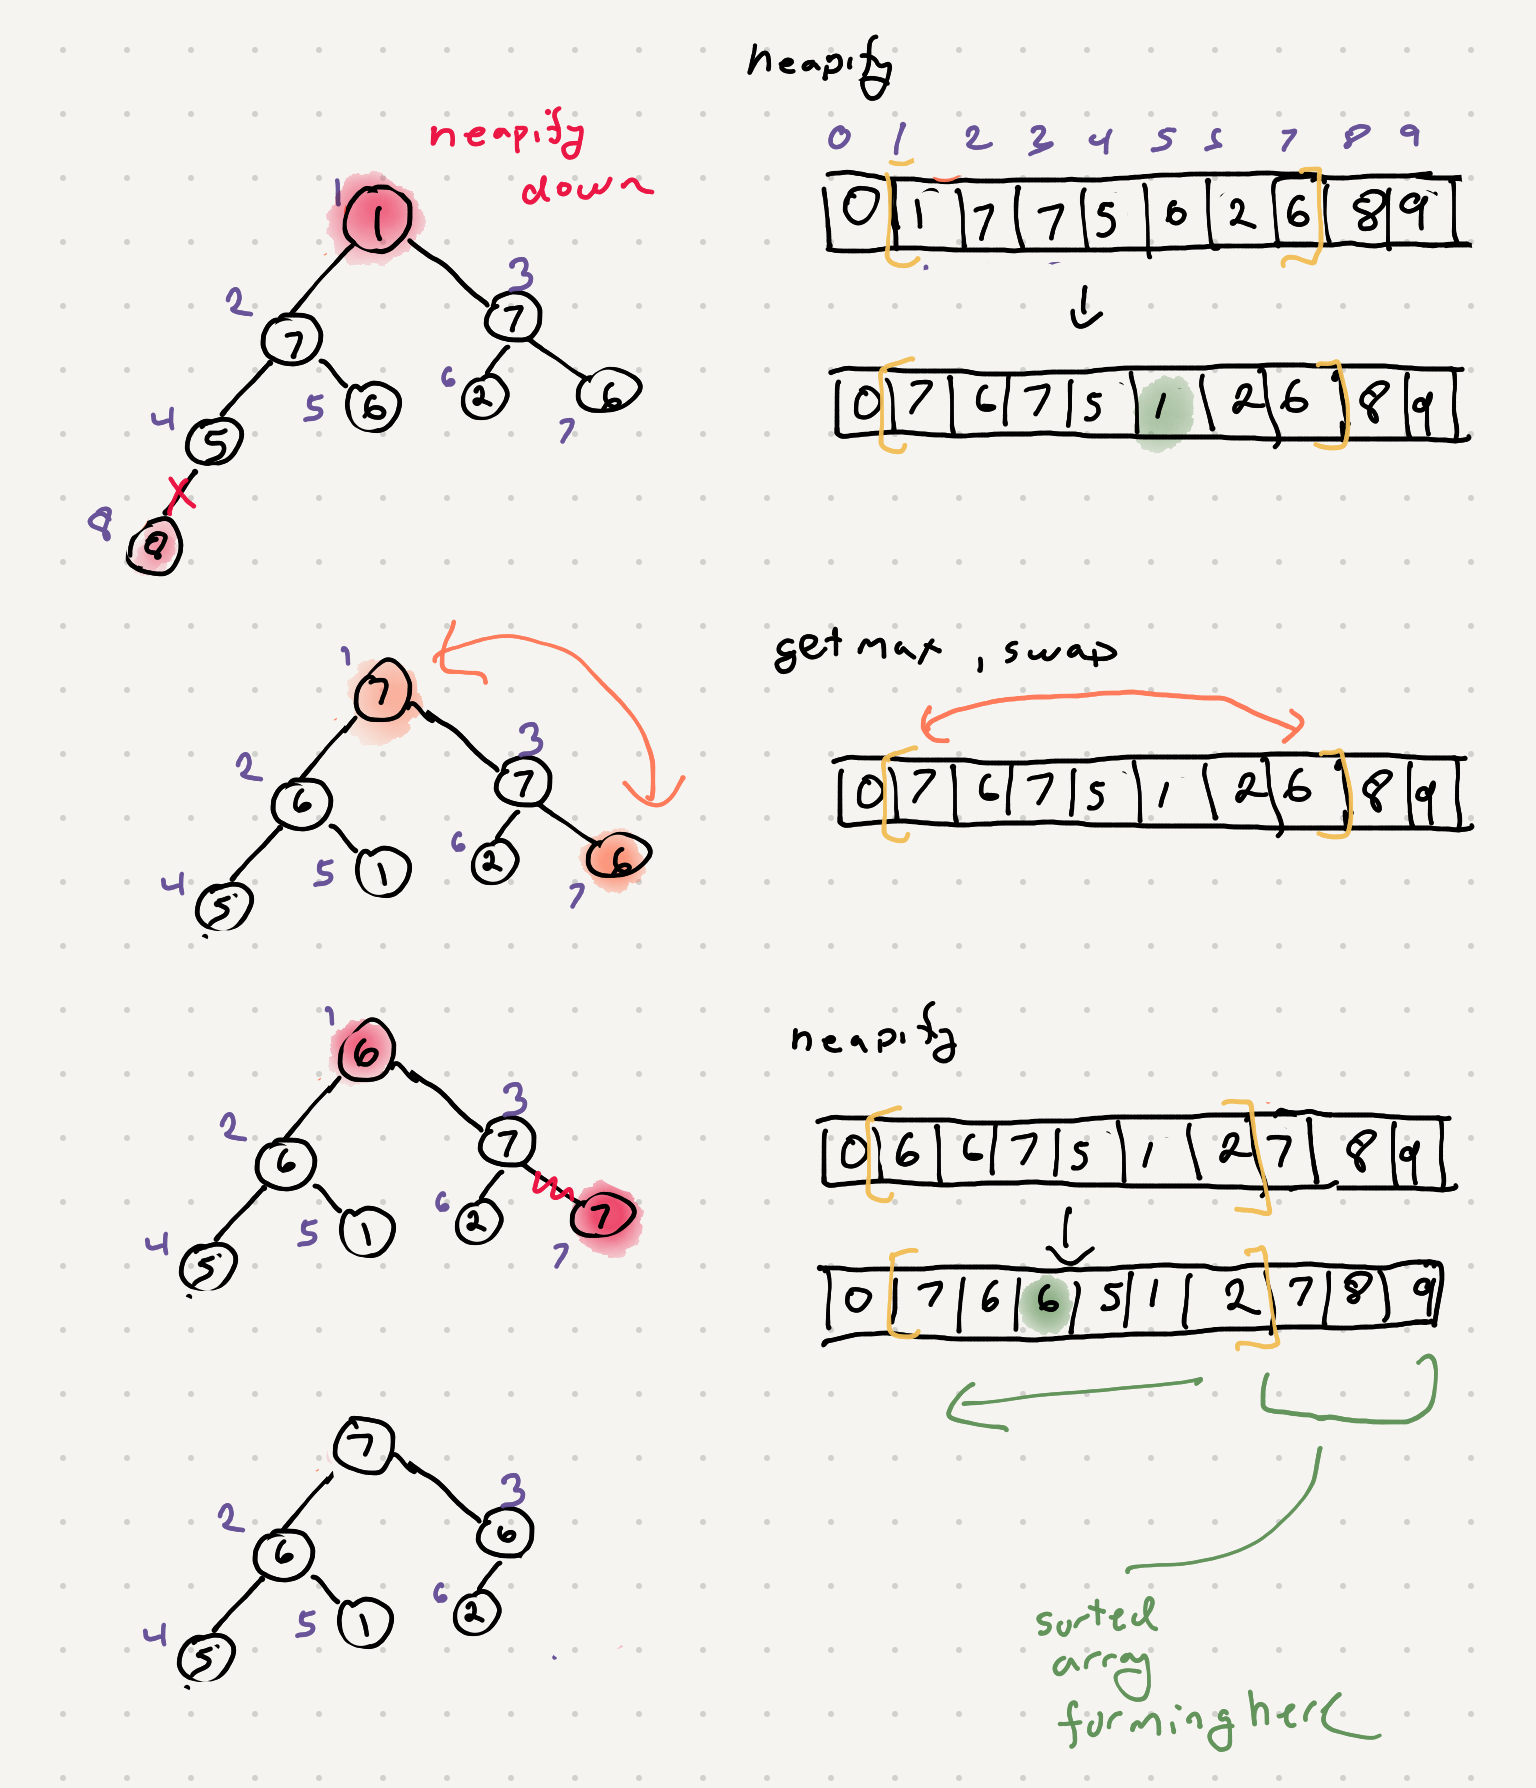 heapify
heapify
down
0 1 2 3 4 5 6 7 8 9
0 1 7 7 5 6 2 6 8 9
1
1
2
7
3
7
4
5
5
6
6
2
7
6
8
0 7 6 7 5 1 2 6 8 9
getmax, swap
1
7
2
6
3
7
4
5
5
1
6
2
7
6
0 7 6 7 5 1 2 6 8 9
heapify
1
6
2
6
3
7
4
5
5
1
6
2
7
7
0 6 6 7 5 1 2 7 8 9
0 7 6 6 5 1 2 7 8 9
7
2
6
3
6
4
5
5
1
6
2
sorted
array
forming here